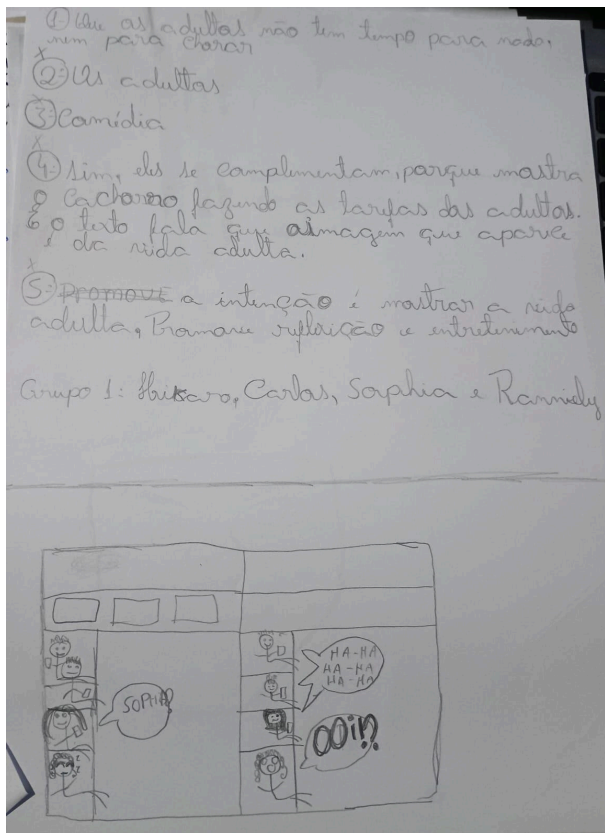 ① Que os adultos não tem tempo para nada,
nem para chorar
②: Os adultos
③: Comídia
④: Sim, eles se complementam, porque mostra
o cachorro fazendo as tarefas dos adultos.
o texto fala que a imagem que aparece
é da vida adulta.
⑤: Promove a intenção é mostrar a vida
adulta, Promove e entretenimento
Grupo 1: Carlos, Sophia e Ranniely
SOPHIA
HA-HA
HA-HA
HA-HA
OOi?!